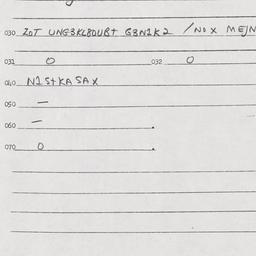 030 ZOT UNG3KL8DUBT G3N1K2 / NO X MEJN
031 O 032 O
040 N1St KA SA X
050 —
060 —
070 O